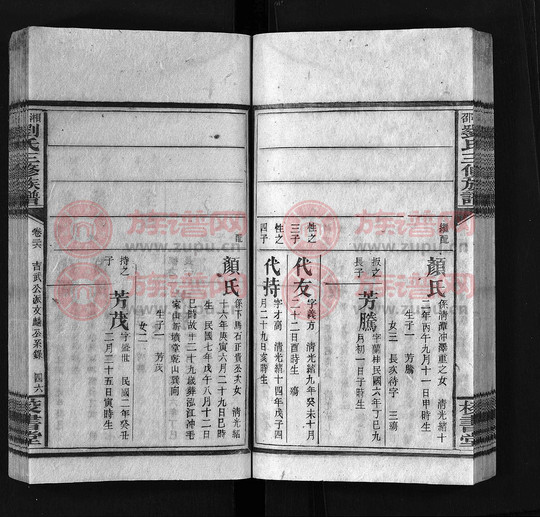 邵劉氏三修族譜
校書堂
繼配
顏氏
係清潭沖澤重之女 清光緒十
二年丙午九月十一日甲時生
生子一 芳騰
女三 長次待字 三殤
振之
長子
芳騰
字蘭桂民國六年丁巳九
月初一日子時生
性之
三子
代友
字義方 清光緒九年癸未十月
二十二日酉時生 殤
性之
四子
代持
字才高 清光緒十四年戊子四
月二十九日亥時生
配
顏氏
係下馬石正貴公次女 清光緒
十六年庚寅六月二十九日巳時
生 民國七年戊午八月十二日
巳時故 十二十九歲葬泓江沖毛
家山新墳堂乾山巽向
生子一 芳茂
女二
持之
子
芳茂
字盛世 民國二年癸丑
二月二十五日寅時生
湘劉氏三修族譜
卷廿六
吉武公派文馳公系錄
四六
校書堂
族谱网
www.zupu.cn
族谱网
www.zupu.cn